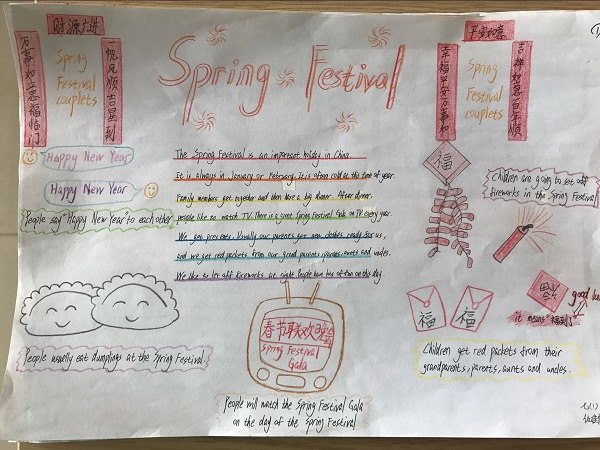 财源广进
万事如意福临门
一帆风顺吉星到
Spring
Festival
couplets
Spring Festival
平安如意
幸福平安万事如
吉祥如意百年顺
Spring
Festival
couplets
Happy New Year
Happy New Year
People say "Happy New Year" to each other
The Spring Festival is an important holiday in China.
It is always in January or February. It is often cold at this time of year.
Family members get together and then have a big dinner. After dinner,
people like to watch TV. There is a great Spring Festival Gala on TV every year.
We get presents. Usually our parents get new clothes ready for us,
and we get red packets from our grand parents, parents, aunts and uncles.
We like to let off fireworks at night. People have lots of fun on this day
福
Children are going to set off
fireworks in the Spring Festival
福
good luck
it means "福到了"
福
福
Children get red packets from their
grandparents, parents, aunts and uncles.
People usually eat dumplings at the Spring Festival.
春节联欢晚会
Spring Festival
Gala
People will match the Spring Festival Gala
on the day of the Spring Festival
七(1)